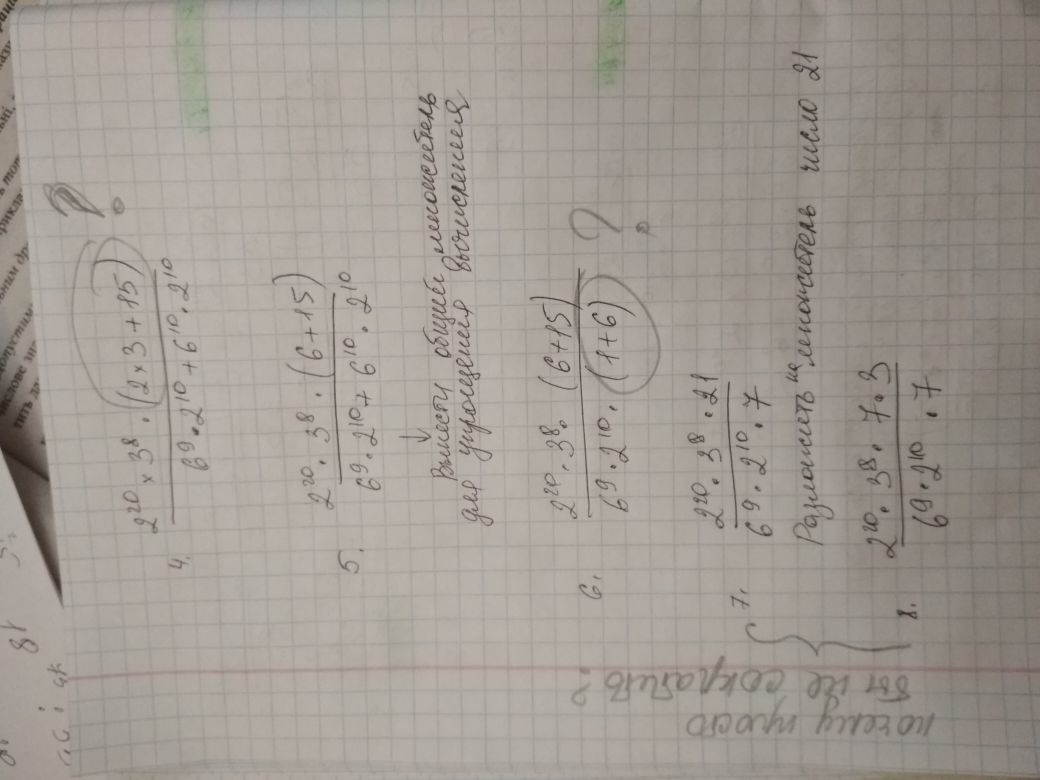 4. 2²⁰ × 3⁸ · (2 × 3 + 15) ?
6⁹ · 2¹⁰ + 6¹⁰ · 2¹⁰
5. 2²⁰ · 3⁸ · (6 + 15)
6⁹ · 2¹⁰ + 6¹⁰ · 2¹⁰
↓
Вынести общий множитель
для упрощения вычисления
6. 2²⁰ · 3⁸ · (6+15) ?
6⁹ · 2¹⁰ · (1+6)
7. 2²⁰ · 3⁸ · 21
6⁹ · 2¹⁰ · 7
Разложить на множитель число 21
8. 2²⁰ · 3⁸ · 7 · 3
6⁹ · 2¹⁰ · 7
почему просто
бы не сократить?